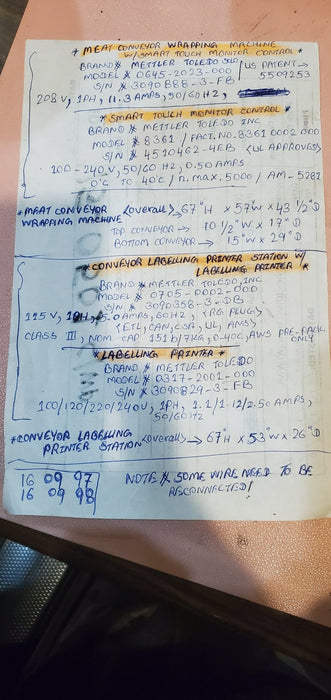 * MEAT CONVEYOR WRAPPING MACHINE
W/ SMART TOUCH MONITOR CONTROL *
BRAND * METTLER TOLEDO INC
MODEL * 0645-2023-000
S/N * 3090888-3-FB
US PATENT →
5509253
208V, 1PH, 11.3 AMPS, 50/60HZ,
* SMART TOUCH MONITOR CONTROL *
BRAND * METTLER TOLEDO INC
MODEL * 8361 / FACT. NO. 8361 0002 000
S/N * 4510462-4EB <UL APPROVED>
100-240V, 50/60 HZ, 0.50 AMPS
0°C TO 40°C / n.max. 5000 / AM-5281
* MEAT CONVEYOR <overall> → 67"H X 57"W X 43 1/2"D
WRAPPING MACHINE
TOP CONVEYOR → 10 1/2"W X 17"D
BOTTOM CONVEYOR → 15"W X 29"D
* CONVEYOR LABELLING PRINTER STATION W/
LABELLING PRINTER *
BRAND * METTLER TOLEDO, INC
MODEL * 0705-0002-000
S/N * 3090358-3-DB
115V, 1PH, 5.0 AMPS, 60HZ, <RG PLUG>
<ETL, CAN, CSA, UL, AMS>
CLASS III, NOM. CAP. 15lb/7KG, 0-40C, AWS PRE-PACK
ONLY
* LABELLING PRINTER *
BRAND * METTLER TOLEDO
MODEL * 0317-2001-000
S/N * 3090829-3-FB
100/120/220/240V, 1PH, 2.1/1.12/2.50 AMPS,
50/60HZ
* CONVEYOR LABELLING <overall> → 67"H X 53"W X 26"D
PRINTER STATION
16 09 97
16 09 98
NOTE * SOME WIRE NEED TO BE
RECONNECTED!